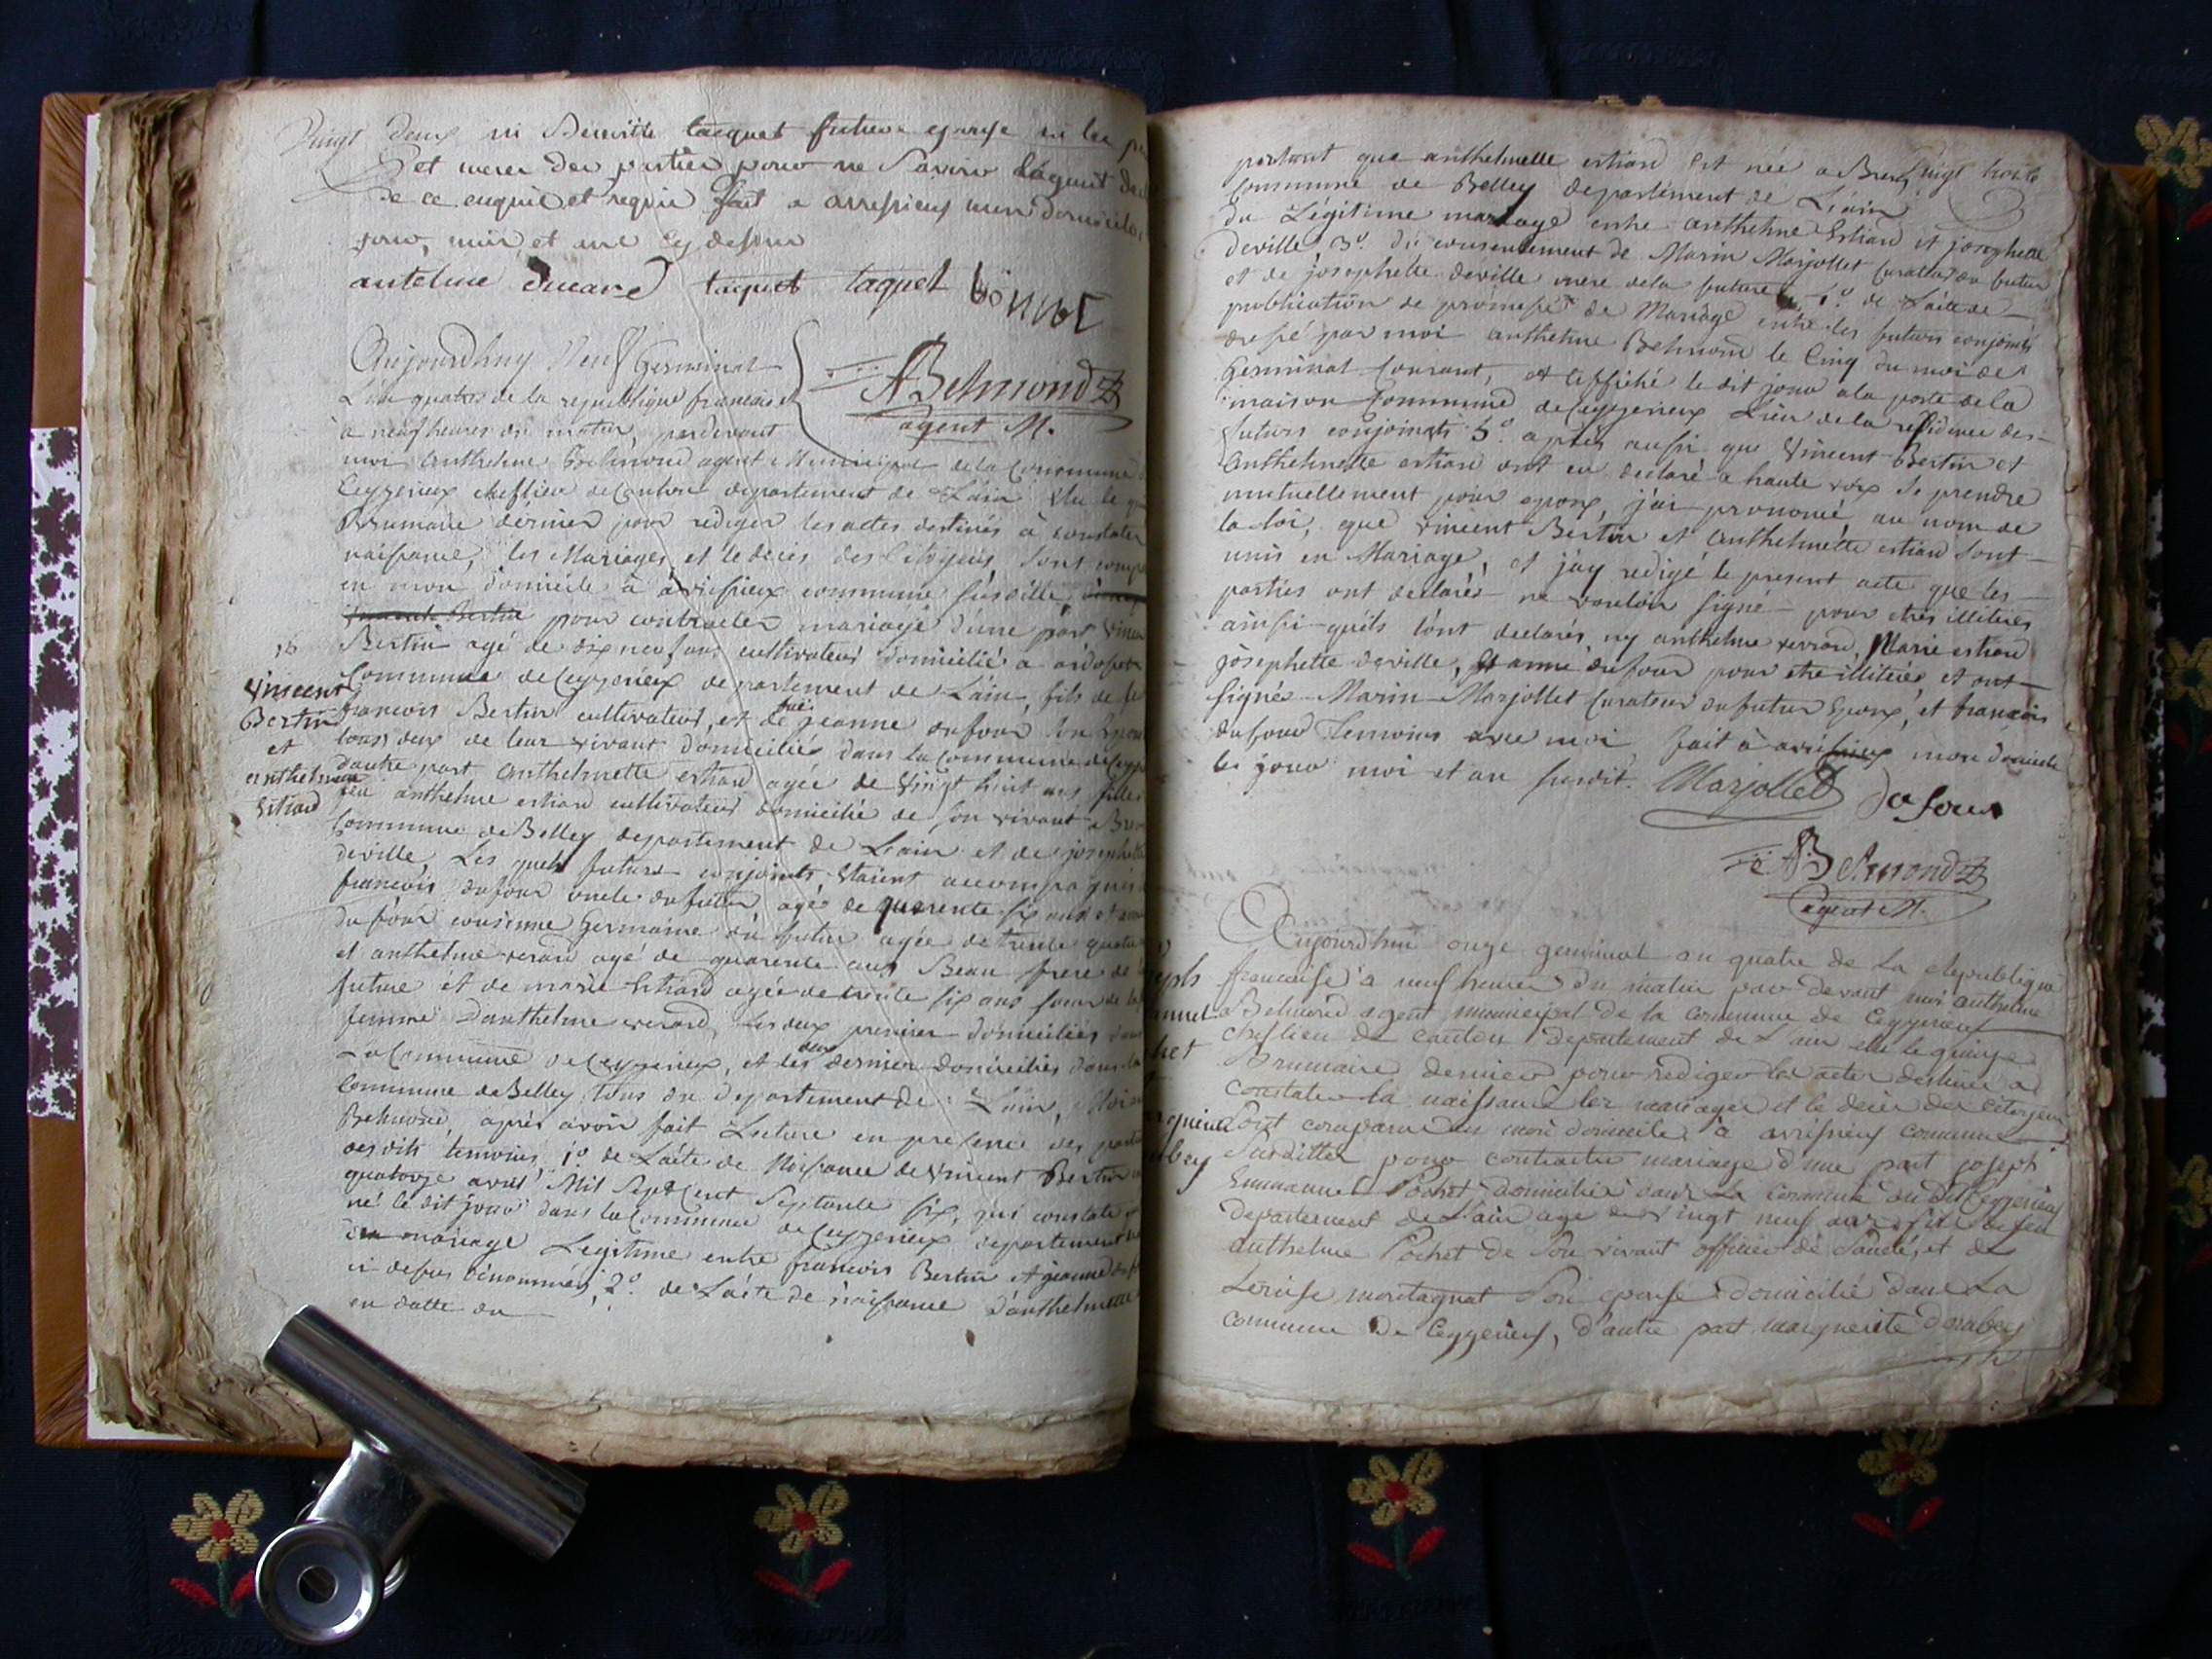 Vingt deux ni Benoitte taquet future epouse ni les
et mere des parties pour ne savoir
de ce enquis et requis fait a arrisieux mon domicile
jour, mois et an cy dessus
antelme ducare taquet taquet bonnet
Aujourdhuy Neuf Germinal
L'an quatre de la republique francaise
à neuf heures du matin, pardevant
ABelmond
agent M.
moi Anthelme Belmond agent Municipal de la Commune
Ceyzerieux cheflieu de Canton departement de L'ain Elu le
Brumaire dernier pour rediger les actes destinés à constater
naissance, les Mariages et le deces des Citoyens, sont
en mon domicile à arrisieux commune susditte,
pour contracter mariage d'une part
18
Bertin agé de dix neuf ans cultivateur domicilié a
Vincent
Bertin
et
anthelmette
Estiard
Commune de Ceyzerieux departement de L'ain, fils de
francois Bertin cultivateur, et de jeanne dufour
tous deux de leur vivant domiciliés dans la Commune de
d'autre part anthelmette estiard agée de Vingt huit ans fille
feu anthelme estiard cultivateur domicilié de son vivant a
Commune de Belley departement de L'ain et de josephette
deville Les quels futurs conjoints etaient accompagnés
francois dufour oncle du futur agé de quarente six ans
dufour cousinne Germaine du futur agée de trente quatre
et anthelme verard agé de quarente ans Beau frere de
future et de marie Estiard agée de trente six ans soeur de la
femme d'anthelme verard, Les deux premier domiciliés dans
La Commune de Ceyzerieux, et les deux dernier domiciliés dans la
Commune de Belley, tous du departement de L'ain, Moi
Belmond, après avoir fait Lecture en presence des parties
desdits temoins, 1º de L'acte de Naissance de Vincent Bertin
quatorze avril Mil Sept Cent Septante six, qui constate
né le dit jour dans la Commune de Ceyzerieux departement
du mariage Legitime entre francois Bertin et jeanne
ci dessus dénommés, 2º. de L'acte de naissance d'anthelmette
en datte du
Vingt trois
portant que anthelmette estiard est née a
Commune de Belley departement de L'ain
du Légitime mariage entre anthelme Estiard et josephette
deville 3º. du consentement de Marin Marjollet Curateur du futur
et de josephette deville mere de la future 4º. de L'acte de
publication de promesse de Mariage entre les futurs conjoints
dressé par moi anthelme Belmond le Cinq du moi de
Germinal Courant, et affiché le dit jour a la porte de la
maison Commune de Ceyzerieux Lieu de la residence des
futurs conjoints 5º. après aussi que Vincent Bertin et
Anthelmette estiard ont eu declaré a haute voix se prendre
mutuellement pour epoux, j'ai prononcé au nom de
la loi, que vincent Bertin et Anthelmette estiard sont
unis en Mariage, et j'ay redigé le present acte que les
parties ont declarés ne vouloir signé pour etres illiterés
ainsi quils l'ont declarés ny anthelme verrard, Marie estiard
josephette deville, et anne dufour pour etre illiterés, et ont
signés Marin Marjollet Curateur du futur Epoux, et francois
dufour Temoins avec moi fait à arrisieux mon domicile
les jour moi et an susdit. Marjollet
dufour
ABelmond
agent M.
Aujourdhui onze germinal an quatre de la Republique
francaise a neuf heures du matin par devant moi anthelme
Belmond agent municipal de la commune de Ceyzerieux
cheflieu de canton departement de L'ain elu le quinze
Brumaire dernier pour rediger les actes destines a
constater la naissance les mariages et le deces des citoyens
sont comparus en mon domicile a arrisieux commune
Susditte pour contracter mariage d'une part joseph
Emmanuel Pochet domicilié dans la commune de Ceyzerieux
departement de L'ain age de vingt neuf ans fils de feu
anthelme Pochet de son vivant officier de santé, et de
Louise montagnat son epouse domicilié dans La
commune de Ceyzerieux, d'autre part marguerite